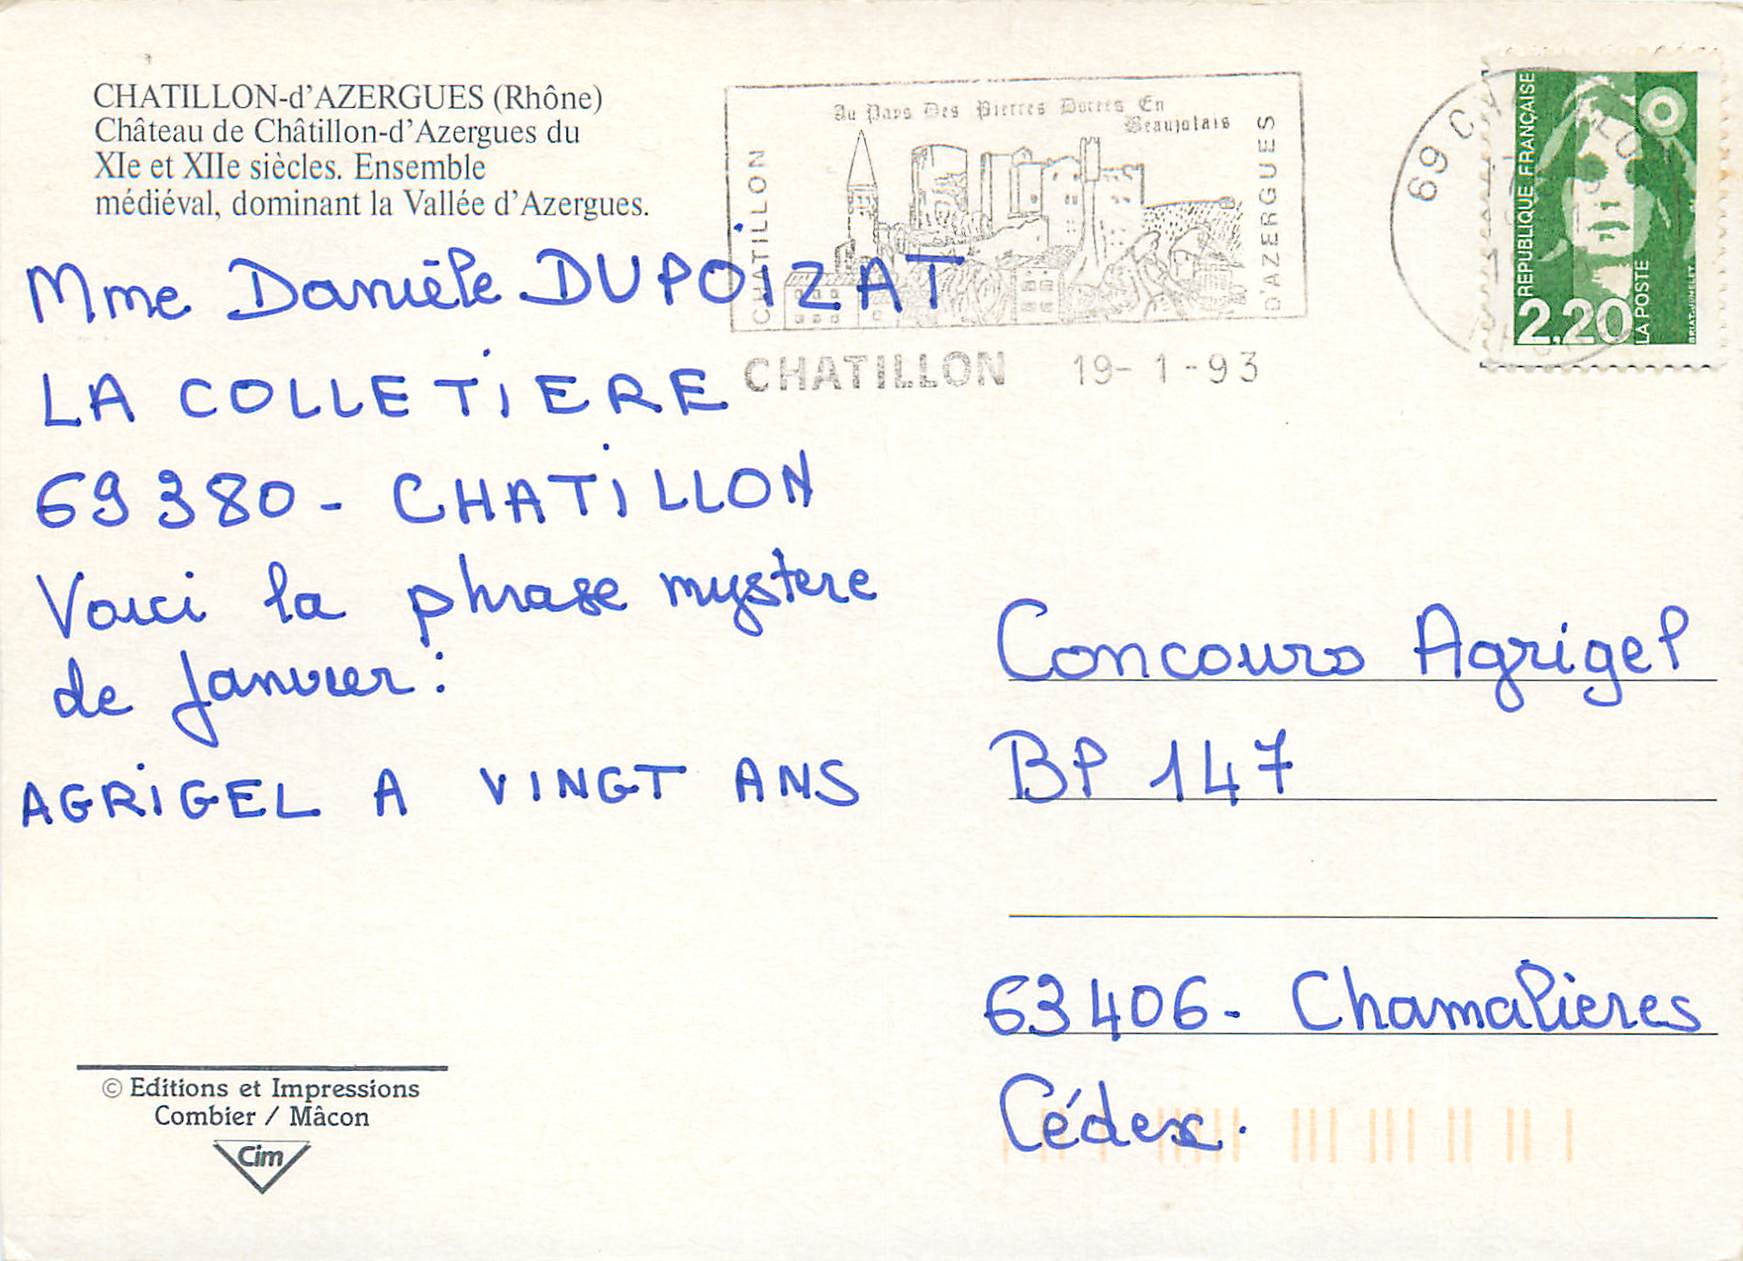 CHATILLON-d'AZERGUES (Rhône)
Château de Châtillon-d'Azergues du
XIe et XIIe siècles. Ensemble
médiéval, dominant la Vallée d'Azergues.
Au Pays Des Pierres Dorées En
Beaujolais
CHATILLON
D'AZERGUES
CHATILLON 19-1-93
69 C
REPUBLIQUE FRANÇAISE
2,20
LA POSTE
BRIAT-JUMELET
Mme Danièle DUPOIZAT
LA COLLETIERE
69380 - CHATILLON
Voici la phrase mystere
de Janvier :
AGRIGEL A VINGT ANS
Concours Agrigel
BP 147
63406 - Chamalieres
Cédex.
© Editions et Impressions
Combier / Mâcon
Cim